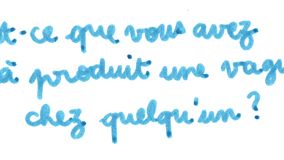 t-ce que vous avez
à produit une vagu
chez quelqu'un ?